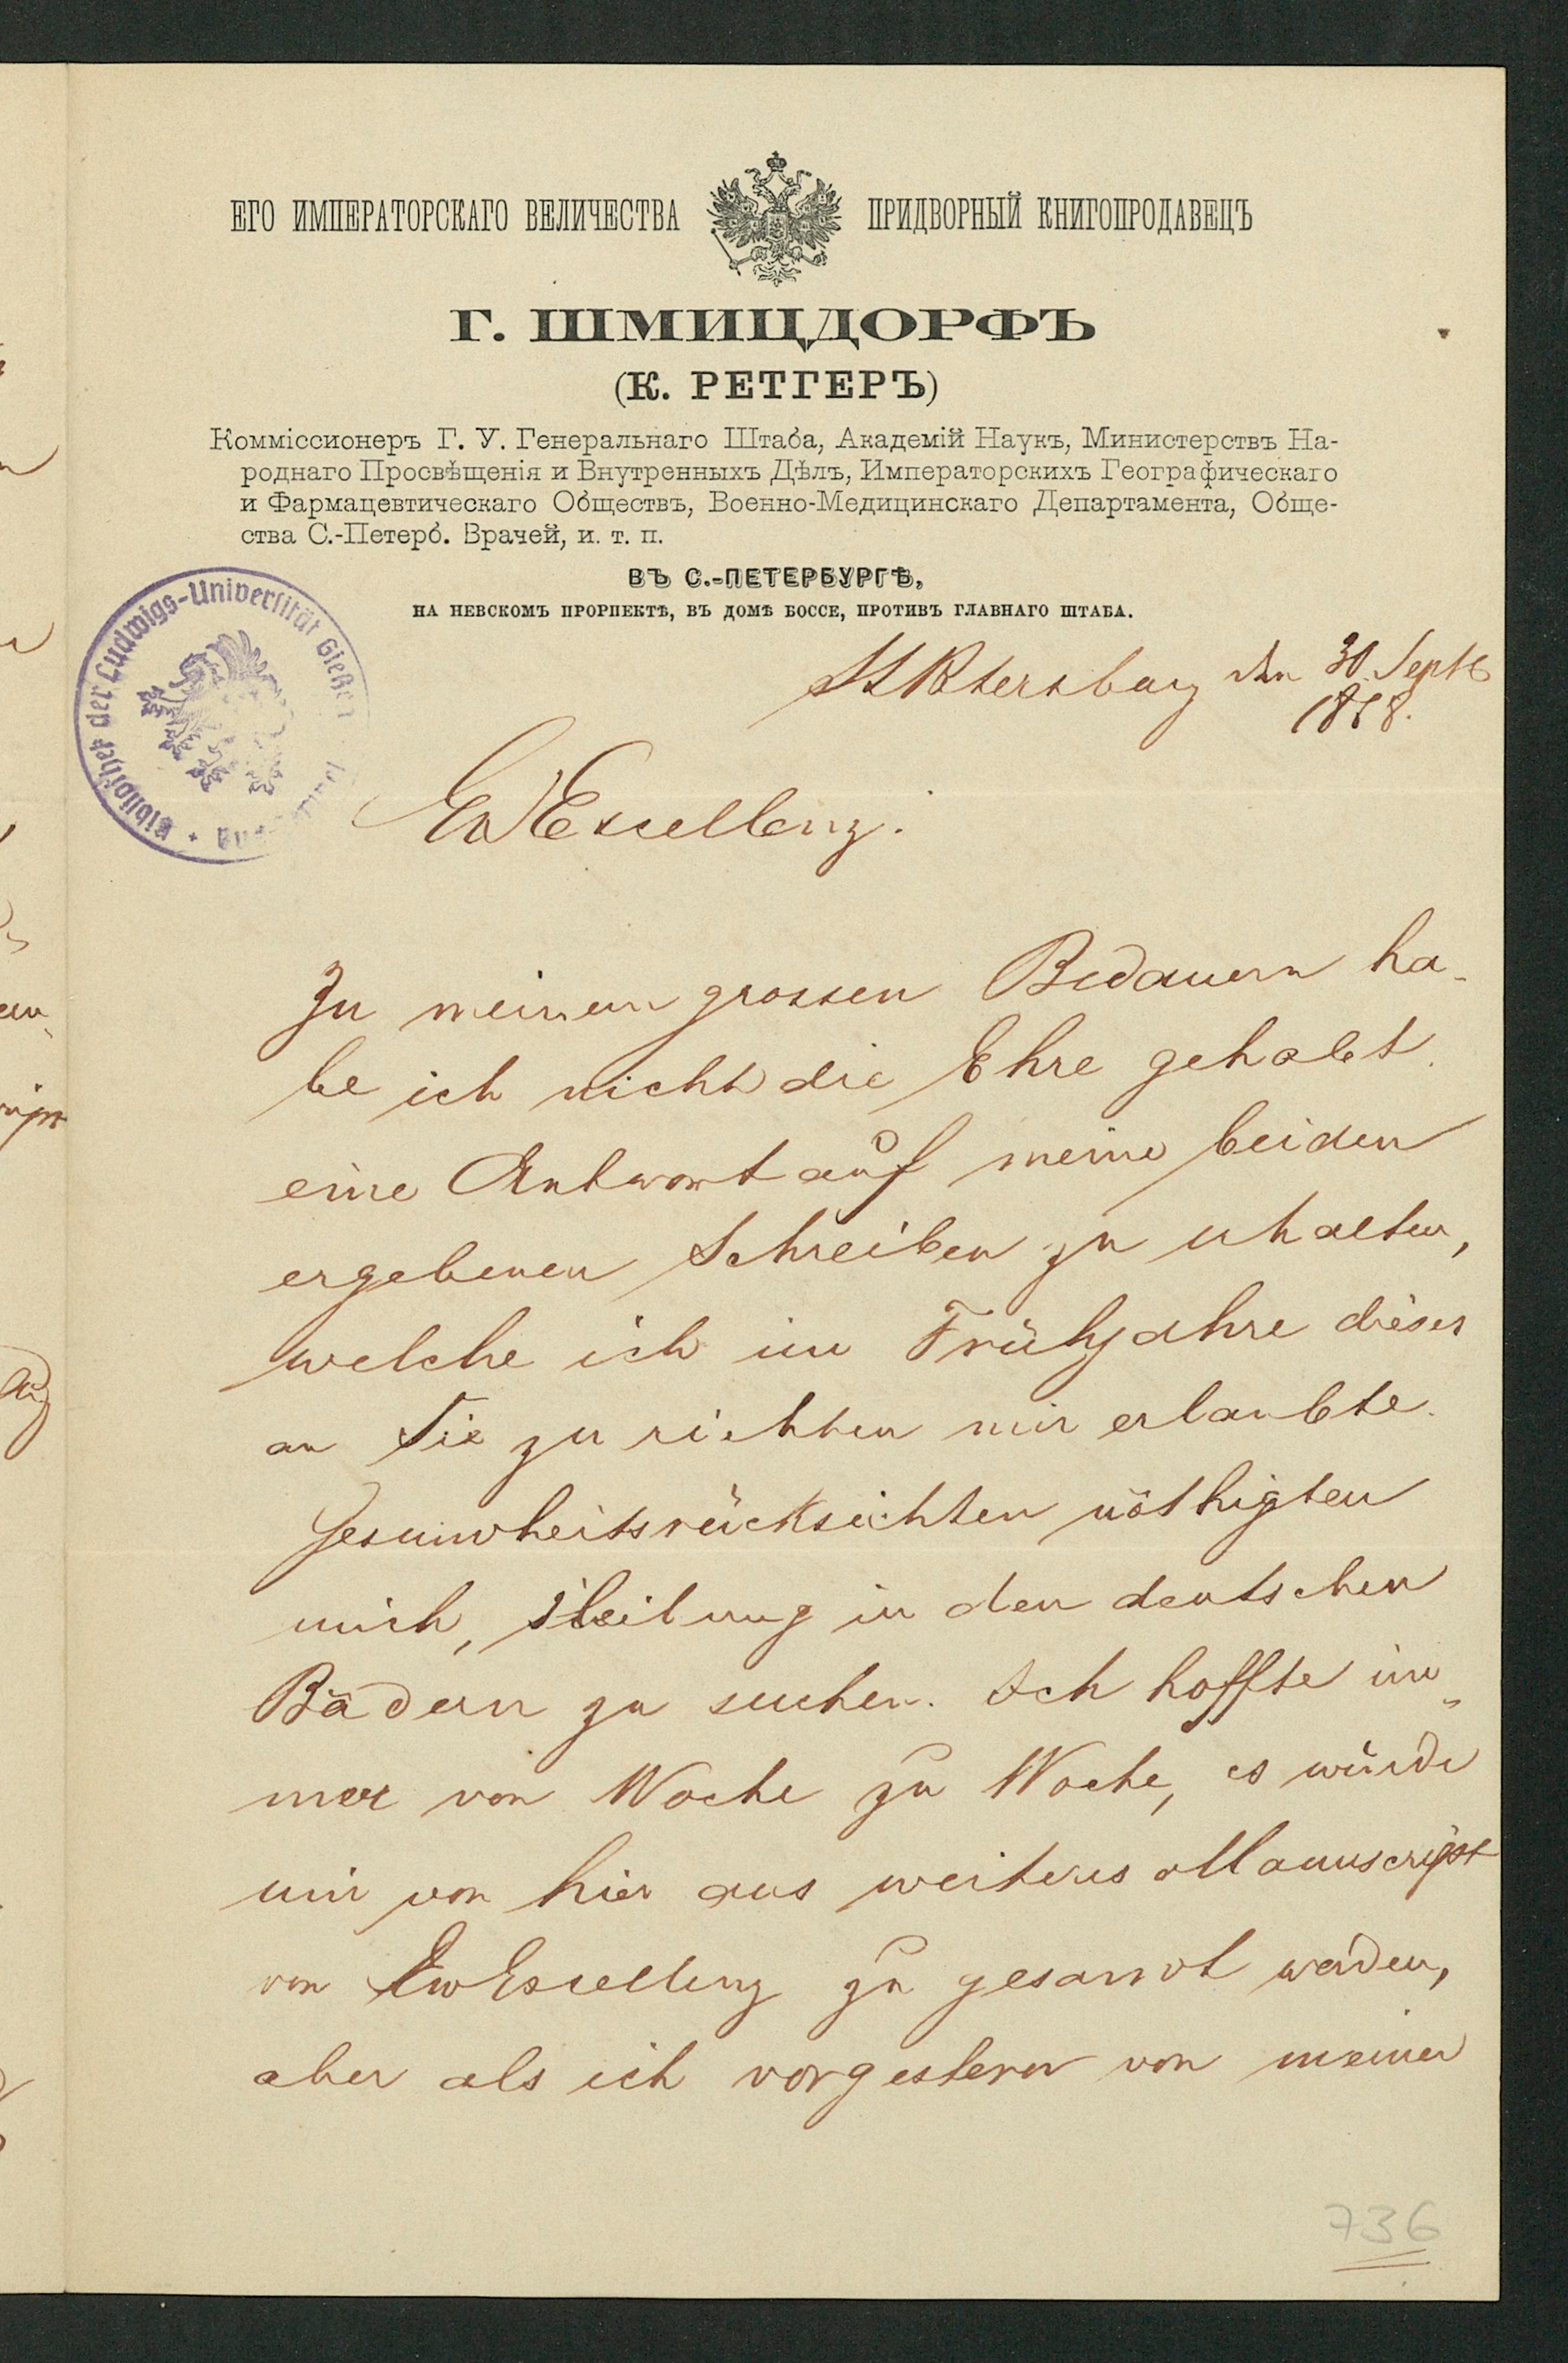 ЕГО ИМПЕРАТОРСКАГО ВЕЛИЧЕСТВА ПРИДВОРНЫЙ КНИГОПРОДАВЕЦЪ
Г. ШМИЦДОРФЪ
(К. РЕТГЕРЪ)
Коммісcіонеръ Г. У. Генеральнаго Штаба, Академій Наукъ, Министерствъ На-
роднаго Просвѣщенія и Внутренныхъ Дѣлъ, Императорскихъ Географическаго
и Фармацевтическаго Обществъ, Военно-Медицинскаго Департамента, Обще-
ства С.-Петерб. Врачей, и. т. п.
ВЪ С.-ПЕТЕРБУРГѢ,
НА НЕВСКОМЪ ПРОРПЕКТѢ, ВЪ ДОМѢ БОССЕ, ПРОТИВЪ ГЛАВНАГО ШТАБА.
Bibliothek der Ludwigs-Universität Gießen
St Petersburg den 30. Septb
1878.
Ew Excellenz.
Zu meinem grossen Bedauern ha-
be ich nicht die Ehre gehabt
eine Antwort auf meine beiden
ergebenen Schreiben zu erhalten,
welche ich im Frühjahre dieses
an Sie zu richten mir erlaubte.
Gesundheitsrücksichten nöthigten
mich, Heilung in den deutschen
Bädern zu suchen. Ich hoffte im-
mer von Woche zu Woche, es würde
mir von hier aus weiteres Manuscript
von Ew Excellenz zu gesandt werden,
aber als ich vorgestern von meiner
736